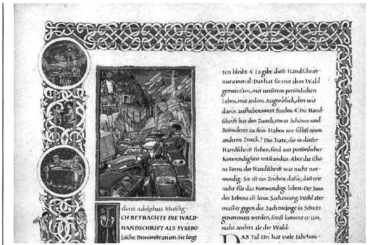 durst Adolphus Muschg
CH BETRACHTE DIE WALD-
HANDSCHRIFT ALS SYMBO
lische Demonstration. Sie liegt
Ich bleibe. Es gibt diese Handschrift
nur einmal. Das hat sie mit dem Wald
gemeinsam, mit unserem persönlichen
Leben, mit jedem Augenblick, den wir
darin aufbekommen finden. Die Hand-
schrift hat den Zweck, etwas Schönes und
Besonderes zu sein. Haben wir selbst einen
anderen Zweck? Die Texte, die in dieser
Handschrift stehen, sind aus persönlicher
Notwendigkeit entstanden. Aber die schö
ne Form der Handschrift war nicht not-
wendig. Sie ist ein Zeichen dafür, daß wir
nicht für das Notwendige leben. Der Sinn
des Lebens ist kein Sachzwang. Wohl aber
muß er gegen die Sachzwänge in Schutz
genommen werden, sonst kommt er um,
nicht anders als der Wald.
DAS Tal Uri hat viele Jahrhun-